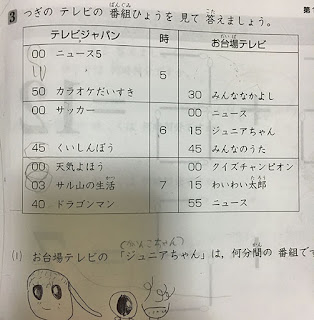 3 つぎの テレビの 番組ひょうを 見て 答えましょう。
ばんぐみ こた
第1
テレビジャパン 時 お台場テレビ
00 ニュース5
5
50 カラオケだいすき 30 みんななかよし
00 サッカー 00 ニュース
6 15 ジュニアちゃん
45 くいしんぼう 45 みんなのうた
00 天気よほう 00 クイズチャンピオン
03 サル山の生活 7 15 わいわい太郎
40 ドラゴンマン 55 ニュース
(1) お台場テレビの 「ジュニアちゃん」は、何分間の 番組で